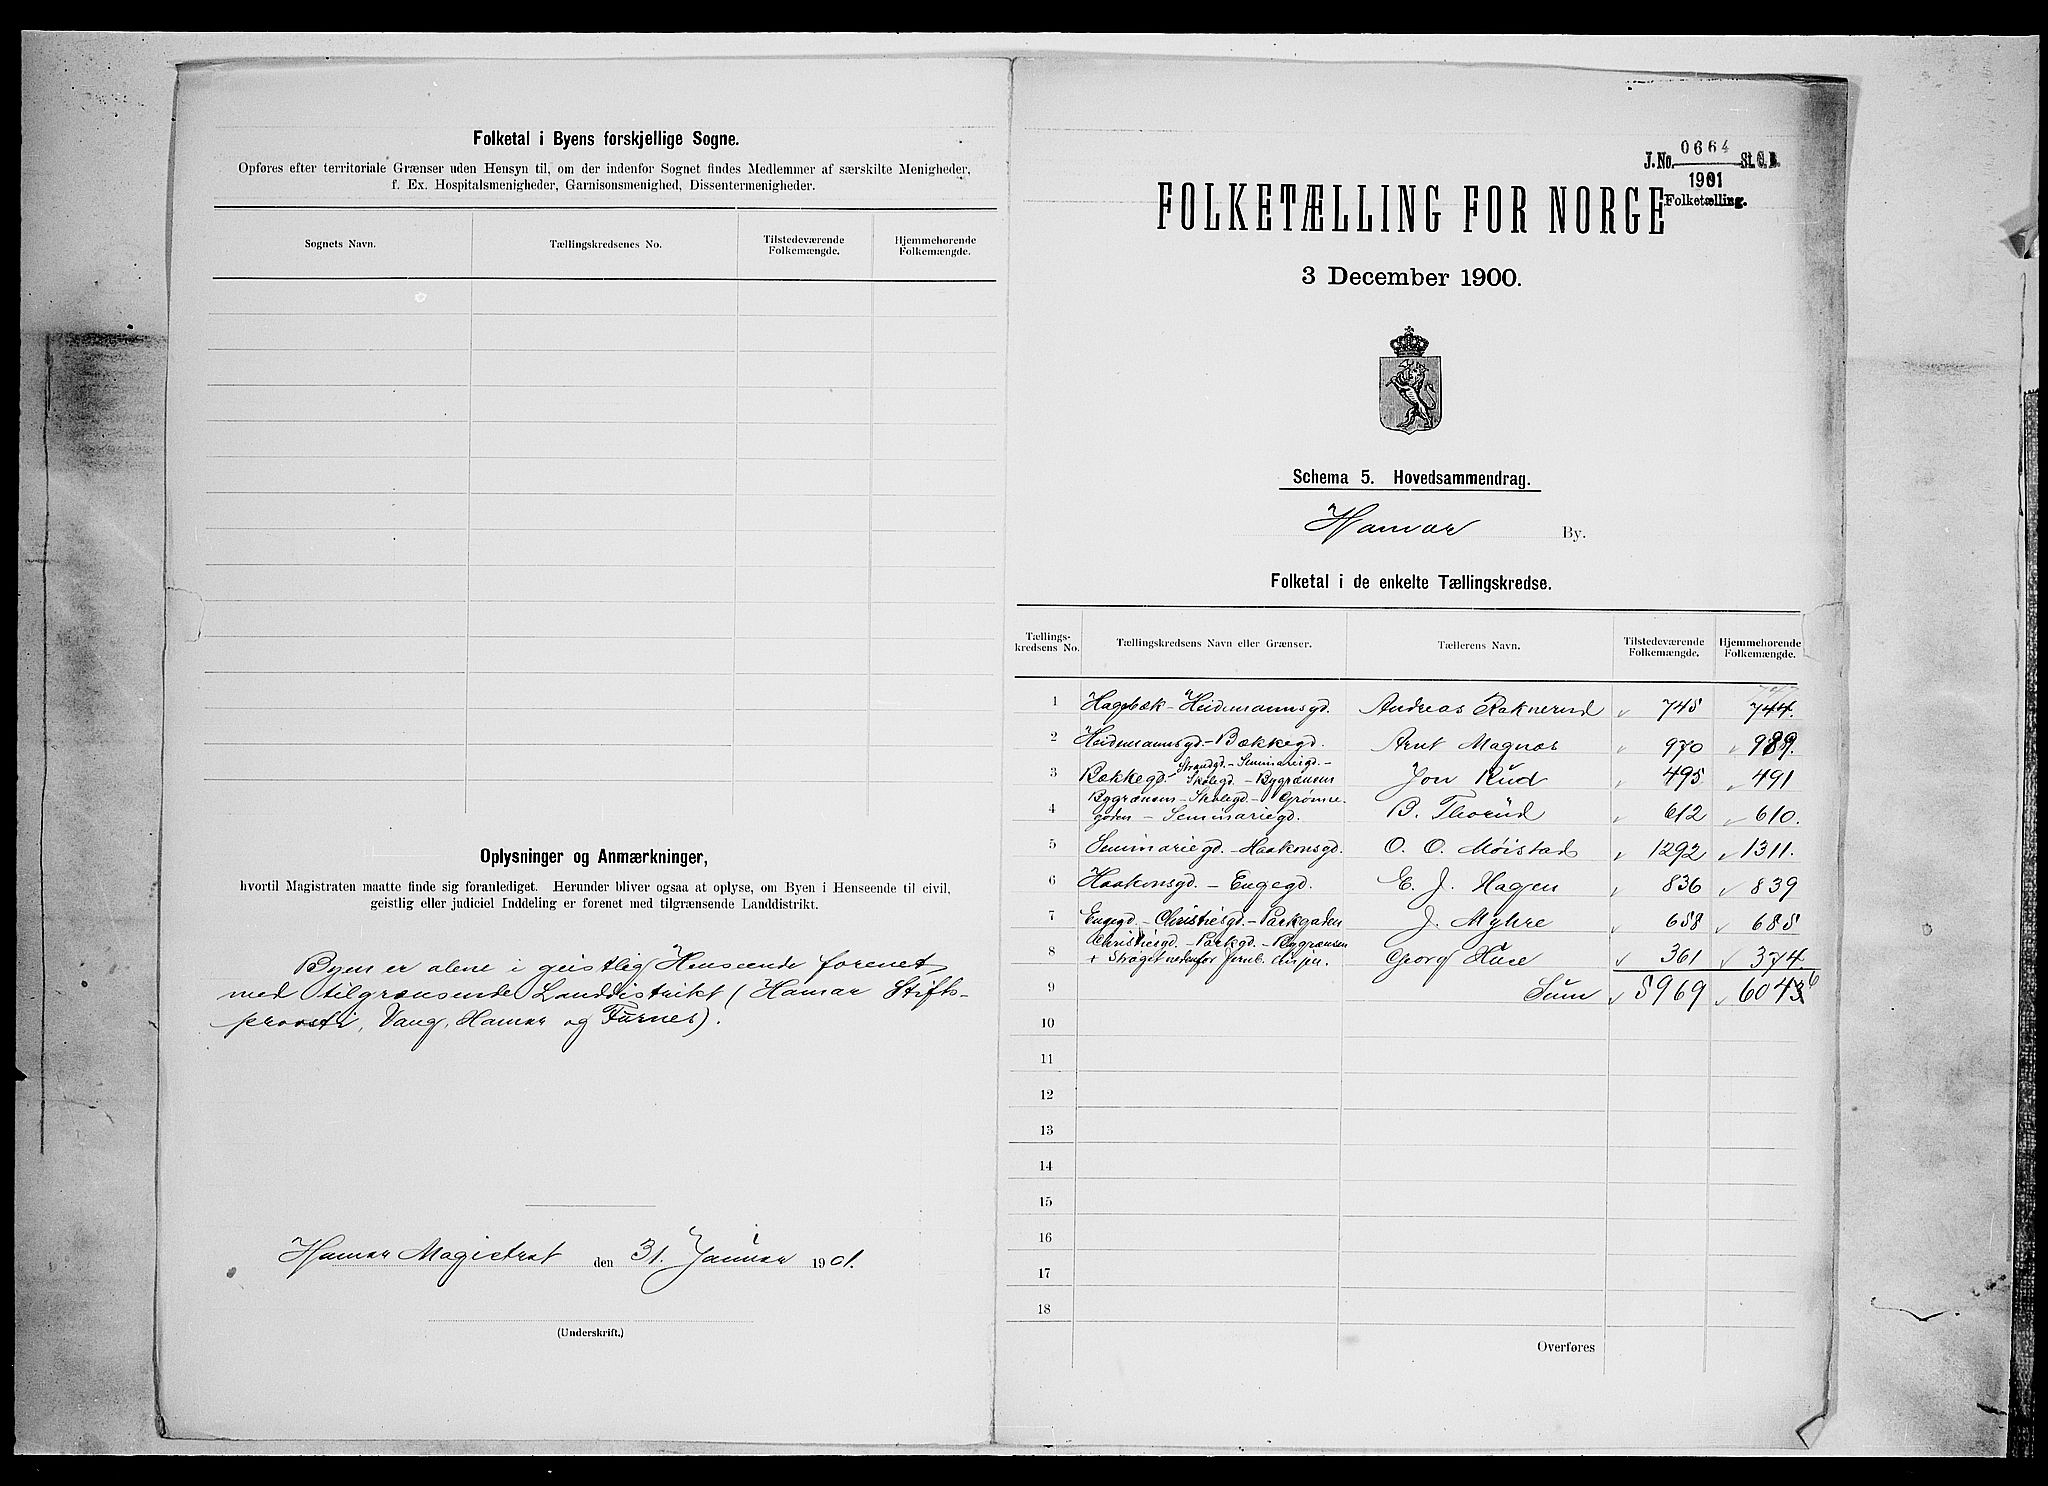 Folketal i Byens forskjellige Sogne.
Opføres efter territoriale Grænser uden Hensyn til, om der indenfor Sognet findes Medlemmer af særskilte Menigheder,
f. Ex. Hospitalsmenigheder, Garnisonsmenighed, Dissentermenigheder.
Sognets Navn. Tællingskredsenes No. Tilstedeværende Folkemængde. Hjemmehørende Folkemængde.
Oplysninger og Anmærkninger,
hvortil Magistraten maatte finde sig foranlediget. Herunder bliver ogsaa at oplyse, om Byen i Henseende til civil,
geistlig eller judiciel Inddeling er forenet med tilgrænsende Landdistrikt.
Byen er alene i geistlig Henseende forenet
med tilgrænsende Landdistrikt (Hamar Stifts-
provsti, Vang, Hamar og Furnes).
Hamar Magistrat den 31. Januar 1901.
(Underskrift.)
J. No. 0664 St. C. B.
1901
Folketælling.
FOLKETÆLLING FOR NORGE
3 December 1900.
Schema 5. Hovedsammendrag.
Hamar By.
Folketal i de enkelte Tællingskredse.
Tællings-kredsens No. Tællingskredsens Navn eller Grænser. Tællerens Navn. Tilstedeværende Folkemængde. Hjemmehørende Folkemængde.
747
1 Hagebæk - Heidemannsgd. Andreas Raknerud 745 744.
2 Heidemannsgd. - Bækkegd. Arnt Magnæs 970 989.
Strandgd. - Seminariegd. -
3 Bækkegd - Skolegd - Bygrænsen Jon Rud 495 491
Bygrænsen - Skolegd. - Grønne
4 gaden - Seminariegd. B. Thorud 612 610.
5 Seminariegd. - Haakonsgd. O. O. Møistad 1292 1311.
6 Haakonsgd. - Engegd. E. J. Hagen 836 839
7 Engegd. - Christiesgd. - Parkgaden J. Myhre 658 685
Christiesgd. - Parkgd. - Bygrænsen
8 + Strøget nedenfor Jernb. linjen. Georg Hue 361 374.
9 Sum 5969 6043 6
10
11
12
13
14
15
16
17
18
Overføres